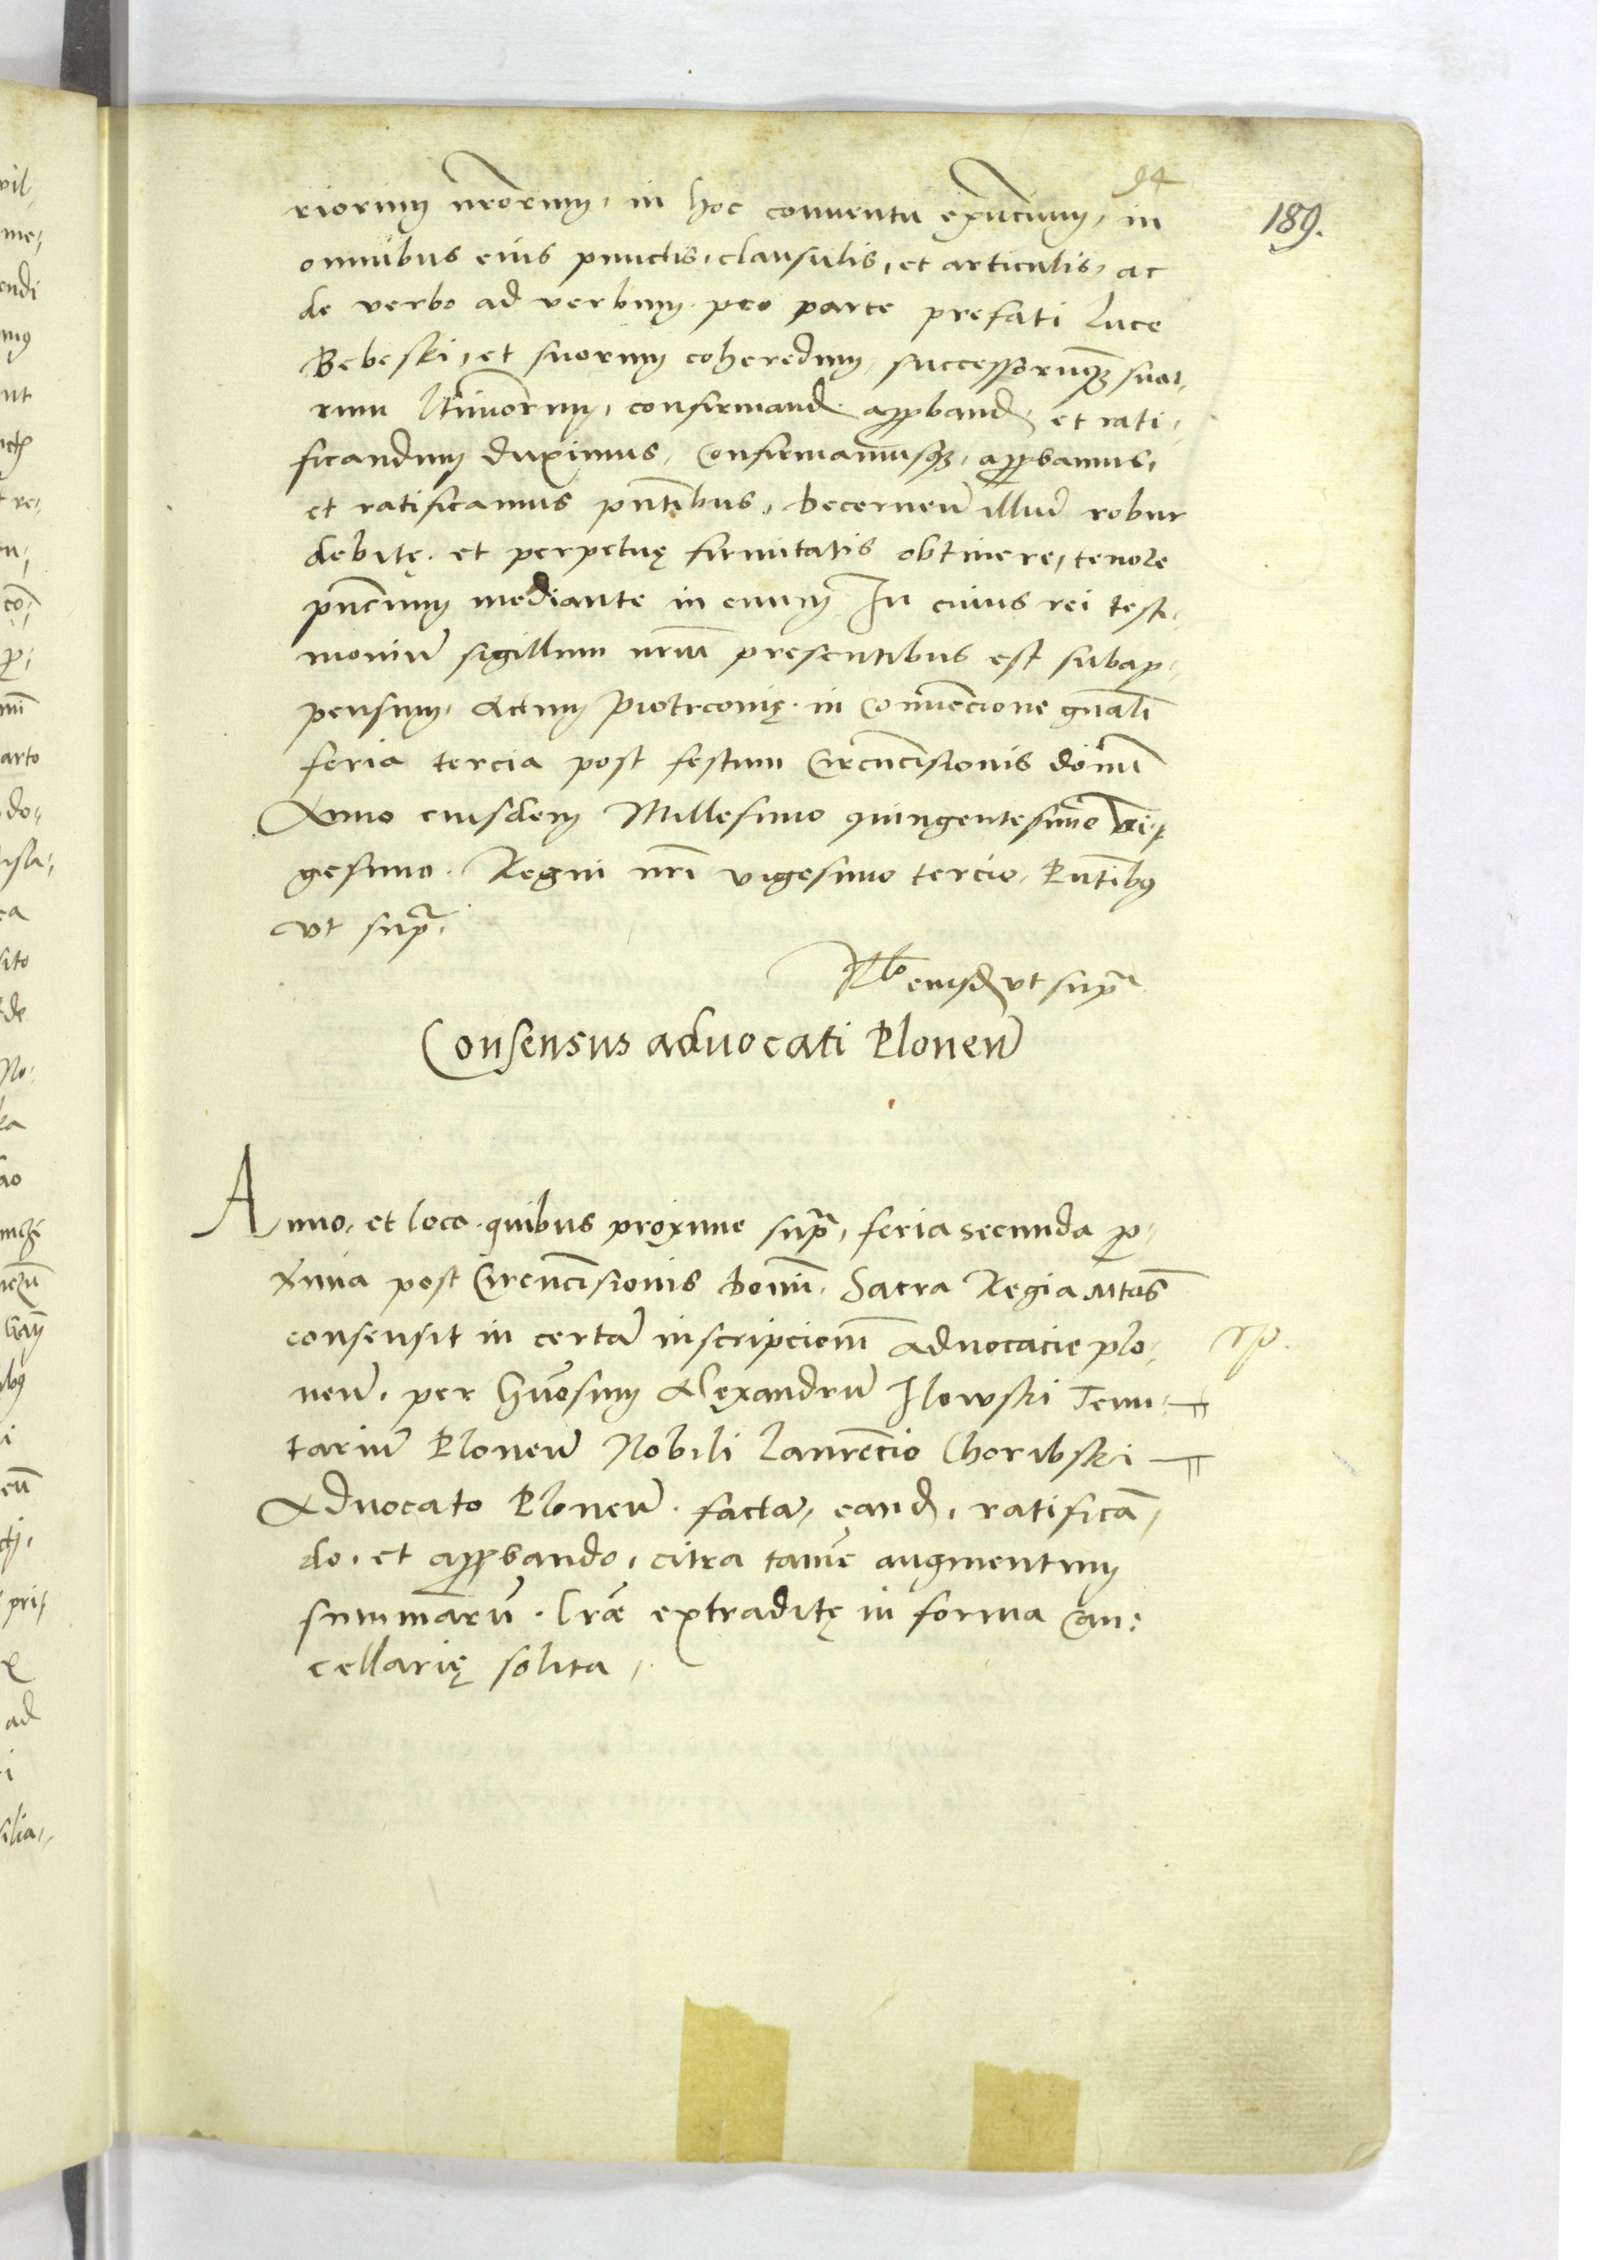 94
189.
riorum nrõrum, in hoc conventu exñcium, in
omnibus eius punctis, clausulis, et articulis, ac
de verbo ad verbum pro parte prefati Luce
Bebeski, et suorum coheredum, successorumq; suo-
rum ltimorum, confirmand approband et rati-
ficandum duximus, Confirmamusq;, approbamus,
et ratificamus pñtibus, decerneñ illud robur
debitę et perpetuę firmitatis obtinere, tenore
pñcium mediante in evum In cuius rei testi-
monium sigillum nrũm presentibus est subap-
pensum, Actum Piotrconię in Convencione gñali
feria tercia post festum Circũcisionis domini
Anno eiusdem Millesimo quingentesimo vi-
gesimo. Regni nri vigesimo tercio. Pñtibus
ut supra.
Rlo eiusd ut supra
Consensus advocati Ploneñ
Anno, et loco quibus proxime supra, feria secunda p-
xima post Circũcisionis domini. Sacra Regia Mtas
consensit in certã inscripcionem advocacie plo-
neñ, per Gñosum Alexandrũ Ilowski Tenu-
tariũ Ploneñ Nobili Laurẽcio Choribski
Advocato Ploneñ factã, eand, ratificã-
do, et approbando, citra tamẽ augmentum
summarũ. Lrẽ extraditę in forma Can-
cellarię solita.